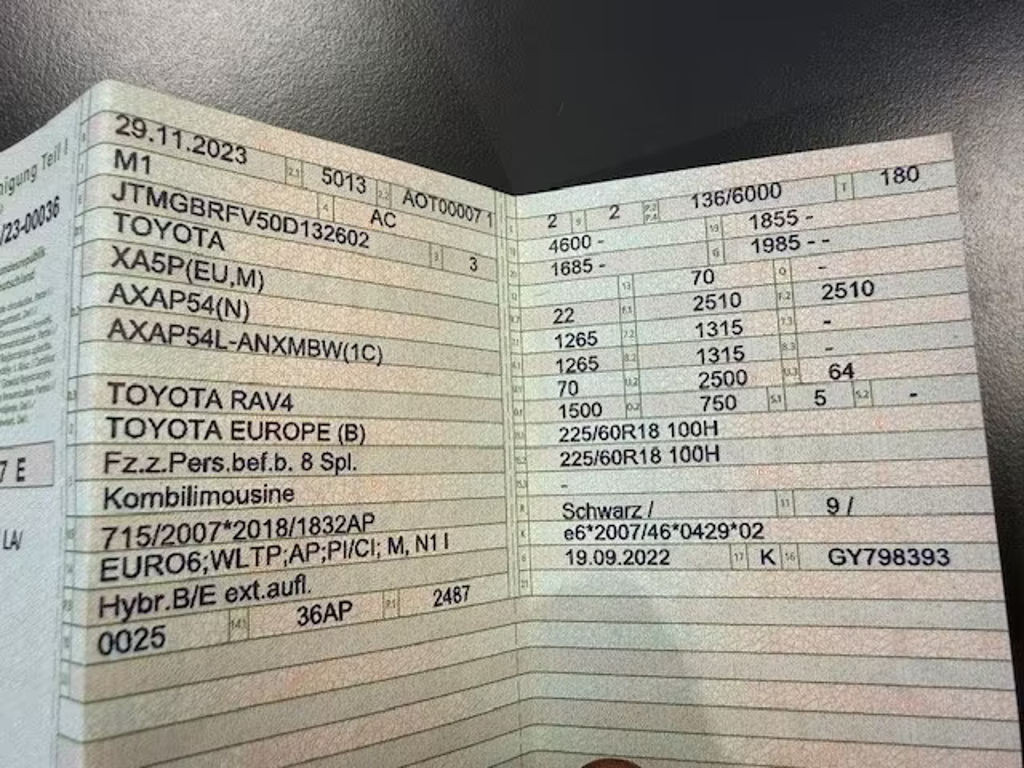 nigung Teil I
/23-00036
7 E
LA/
29.11.2023 2.1 5013 2.2 AOT00007 1
M1 4 AC
JTMGBRFV50D132602 3 3
TOYOTA
XA5P(EU,M)
AXAP54(N)
AXAP54L-ANXMBW(1C)
TOYOTA RAV4
TOYOTA EUROPE (B)
Fz.z.Pers.bef.b. 8 Spl.
Kombilimousine
715/2007*2018/1832AP
EURO6;WLTP;AP;PI/CI; M, N1 I
Hybr.B/E ext.aufl.
0025 14.1 36AP P.1 2487
2 9 2 P.2 P.4 136/6000 T 180
4600 - 19 1855 -
1685 - G 1985 - -
13 70 Q -
22 F.1 2510 F.2 2510
1265 7.2 1315 7.3 -
1265 8.2 1315 8.3 -
70 U.2 2500 U.3 64
1500 O.2 750 S.1 5 S.2 -
225/60R18 100H
225/60R18 100H
-
Schwarz / 11 9 /
e6*2007/46*0429*02
19.09.2022 17 K 16 GY798393
21